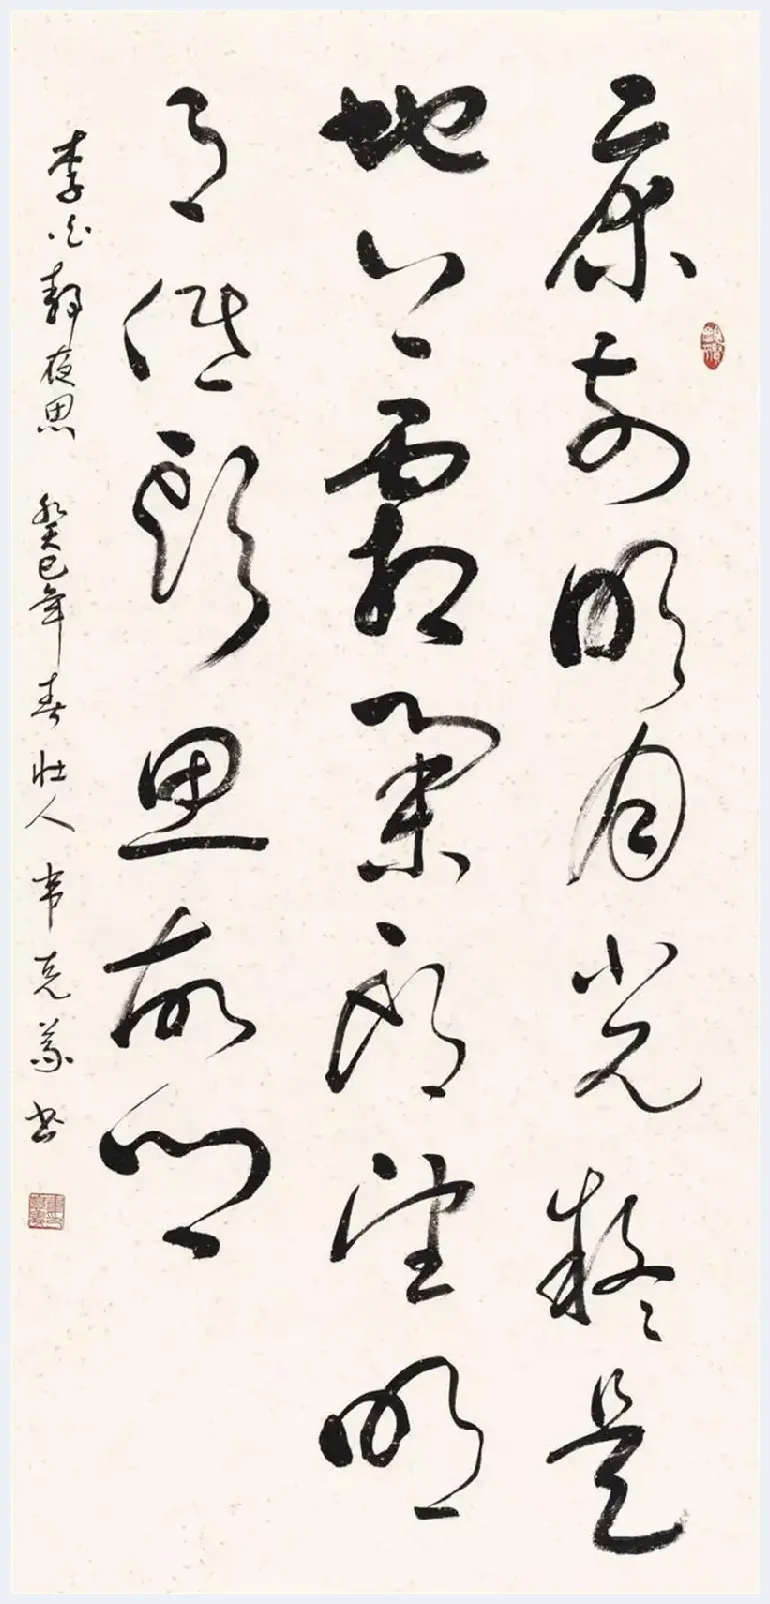 床前明月光疑是
地上霜舉頭望明
月低頭思故鄉
李白靜夜思 癸巳年春 壯人 韋克義書